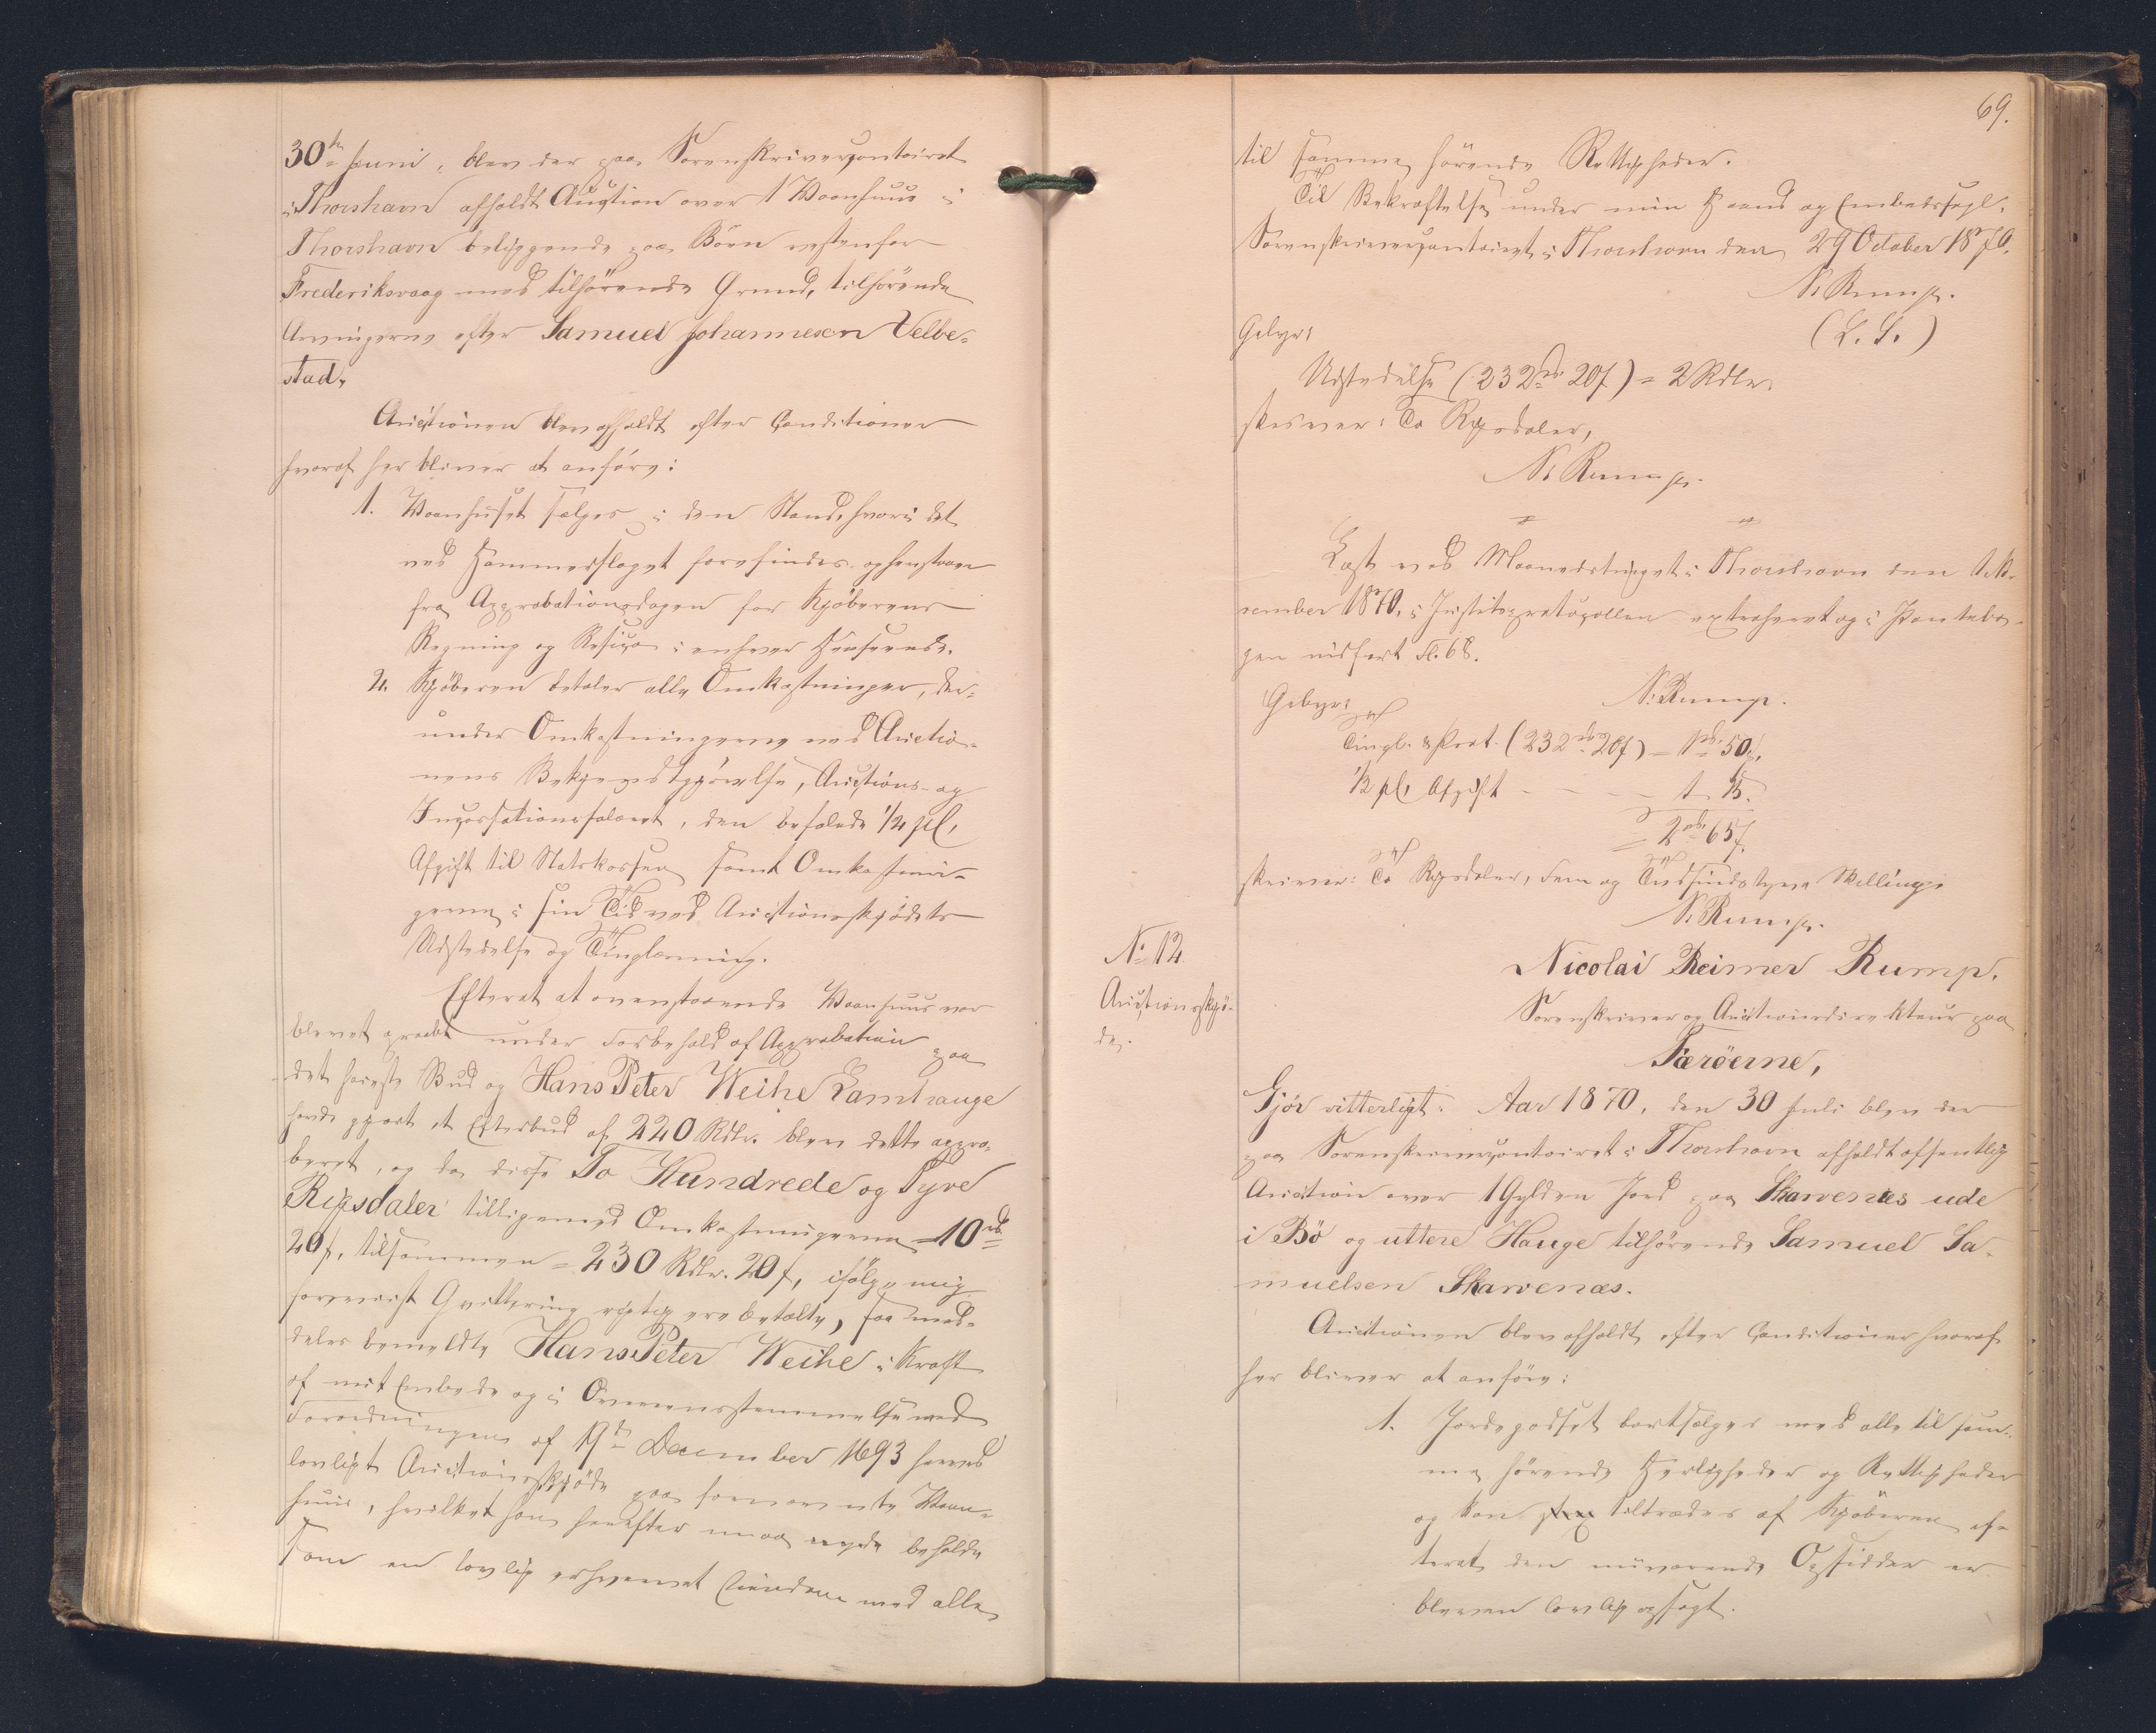 30te Juni, blev der paa Sorenskrivercontoiret
i Thorshavn afholdt Auction over 1 Vaanhuus i
Thorshavn beliggende paa Böen vestenfor
Frederiksvaag med tilhörende Grund, tilhörende
Arvingerne efter Samuel Johannesen Velbe-
stad.
Auctionen blev afholdt efter Conditioner
hvoraf her bliver at anföre:
1. Vaanhuset sælges i den Stand, hvori det
ved Hammerslaget forefindes og henstaaer
fra Approbationsdagen for Kjöberens
Regning og Risico i enhver Henseende.
2. Kjöberen betaler alle Omkostninger, der-
under Omkostningerne ved Auctio-
nens Bekjendtgjörelse, Auctions- og
Incassationssalairet, den befalede 1/2 pCt.
Afgift til Statskassen samt Omkostnin-
gerne i sin Tid ved Auctionsskjödets
Udstedelse og Tinglæsning.
Efterat at ovenstaaende Vaanhuus var
blevet opraabt under Forbehold af Approbation paa
det höieste Bud og Hans Peter Weihe Lamhauge
havde gjort et Efterbud af 220 Rdlr. blev dette appro-
beret, og da disse To Hundrede og Tyve
Rigsdaler tilligemed Omkostningerne = 10 rd
20 f, tilsammen = 230 Rdlr. 20 f, ifölge mig
foreviist Qvittering rigtig ere betalte, saa med-
deles bemeldte Hans Peter Weihe i Kraft
af mit Embede og i Overeensstemmelse med
Forordningen af 19de December 1693 herved
lovligt Auctionsskjöde paa fornævnte Vaan-
huus, hvilket han herefter maa nyde beholde
som en lovlig erhvervet Eiendom med alle
69.
til samme hörende Rettigheder.
Til Bekræftelse under min Haand og Embedssegl.
Sorenskrivercontoiret i Thorshavn den 29 October 1870.
N. Rump.
(L. S.)
Gebyr:
Udstedelse (232 rd 20 f) = 2 Rdlr.
skriver: To Rigsdaler,
N. Rump.
Læst ved Maanedstinget i Thorshavn den 1ste De-
cember 1870, i Justitsprotocollen extraheret og i Pantebo-
gen indfört Fl. 68.
N. Rump.
Gebyr:
Tingl. & Prot. (232 rd 20 f) = 1 rd 50 f,
1/2 pCt. Afgift - - - - 1. 15.
= 2 rd 65 f.
skriver: To Rigsdaler, Fem og Tredsindstyve Skilling.
N. Rump.
No. 12
Auctionsskjö-
de.
Nicolai Reimer Rump.
Sorenskriver og Auctionsdirekteur paa
Færöerne,
Gjör vitterligt: Aar 1870, den 30 Juli blev der
paa Sorenskrivercontoiret i Thorshavn afholdt offentlig
Auction over 1 Gylden Jord paa Skarvenæs ude
i Bö og uttere Hauge tilhörende Samuel Sa-
muelsen Skarvenæs.
Auctionen blev afholdt efter Conditioner hvoraf
her bliver at anföre:
1. Jordegodset bortsælges med alle til sam-
me hörende Herligheder og Rettigheder
og kan tiltrædes af Kjöberen ef-
terat den nuværende Opsidder er
bleven lovlig opsagt.